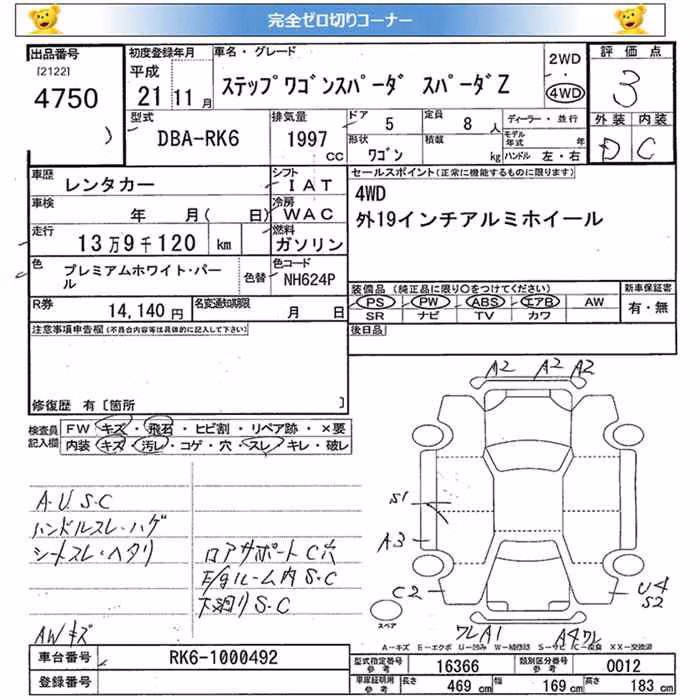 完全ゼロ切りコーナー
出品番号
[2122]
4750
)
初度登録年月
平成
21 11月
車名・グレード
ステップワゴンスパーダ スパーダZ
2WD
・
4WD
評価点
3
外装 内装
D C
型式
DBA-RK6
排気量
1997
CC
ドア 5
定員 8人
形状
ワゴン
積載
kg
ディーラー・並行
モデル年式 年
ハンドル 左・右
車歴
レンタカー
シフト
I A T
車検
年 月( 日)
冷房
W A C
走行
13万9千120 km
燃料
ガソリン
色
プレミアムホワイト・パール
色替
色コード
NH624P
R券
14,140円
名変通知期限
月 日
セールスポイント(正常に機能するものに限ります)
4WD
外19インチアルミホイール
装備品(純正品に限り○をつけてください)
PS PW ABS エアB AW
SR ナビ TV カワ
新車保証書
有・無
注意事項申告欄(不具合内容等は具体的に記入して下さい)
後日品
修復歴 有[箇所 ]
検査員
記入欄
FW キズ・飛石・ヒビ割・リペア跡・×要
内装 キズ・汚レ・コゲ・穴・スレ・キレ・破レ
A・U S・C
ハンドルスレ・ハゲ
シートスレ・ヘタリ
ロアサポートC穴
E/gルーム内 S・C
下廻り S・C
AWキズ
A2 A2 A2
S1
A3
C2
U4
S2
スペア
ワレA1 A4ワレ
A-キズ E-エクボ U-凹み W-補修跡 S-サビ C-腐食 XX-交換済
車台番号
RK6-1000492
登録番号
型式指定番号
参考
16366
類別区分番号
参考
0012
車庫証明用
参考
長さ 469 cm
幅 169 cm
高さ 183 cm